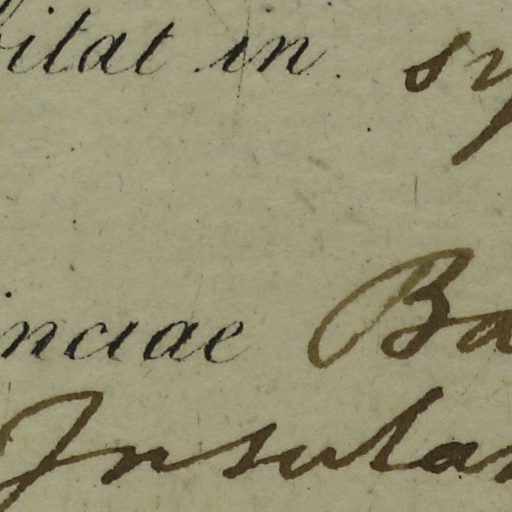 bitat in sy
inciae Ba
Insular